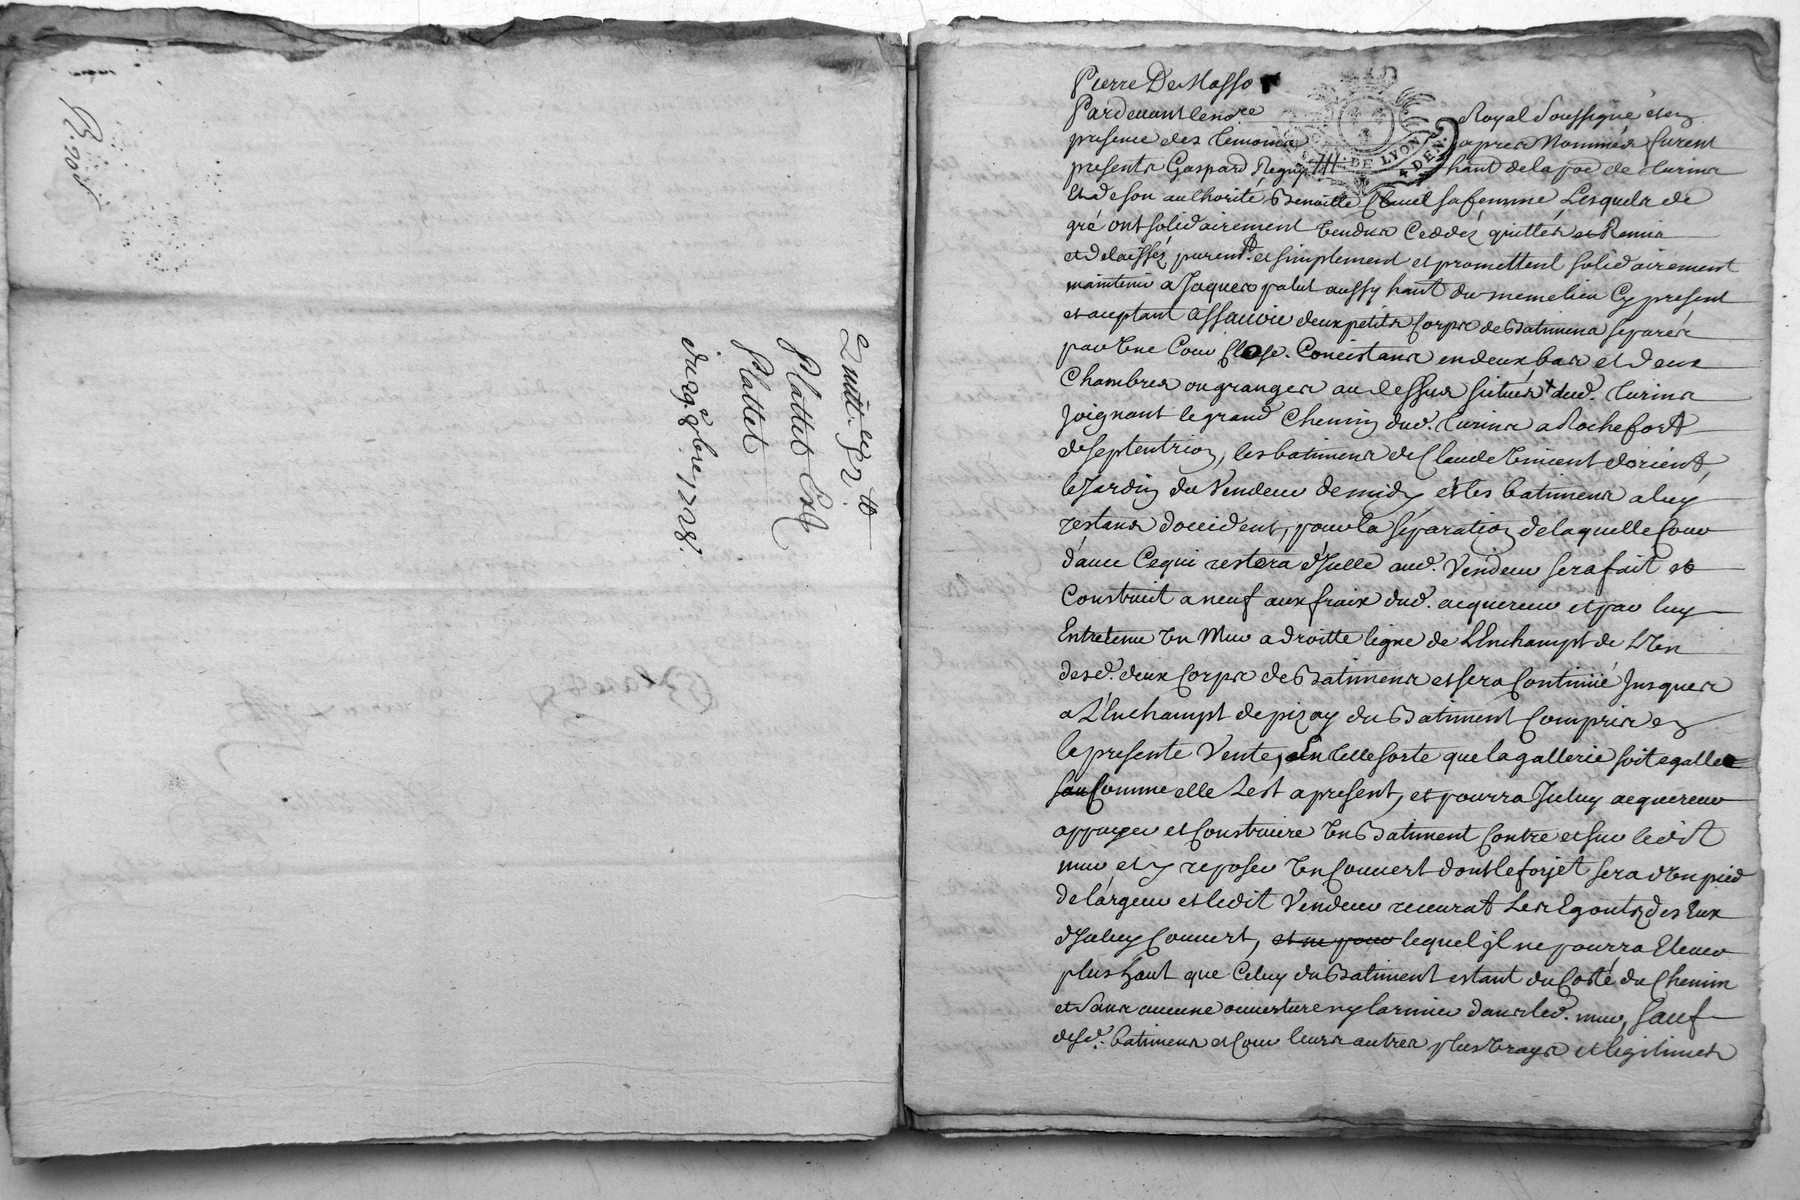 B. 208
Quitt.
Plattet
Plattet
du 29e 9bre 1728.
Pierre De Masso
Pardevant le no.re Royal Soussigné et en
presence des temoins apres Nommés furent
DE LYON
DEN.
presents Gaspard hant de la poe de Turins
Et de son authorité Benoitte Clavel sa femme Lesquels de
gré ont solidairement Vendus Ceddés quittés et Remis
et delaissés purem.t et simplement et promettent solidairement
maintenir a Jaques palut aussy hant du meme lieu Cy present
et aceptant assavoir deux petits Corps de Batimens separés
par Une Cour Close. Concistans en deux bas et deux
Chambres ou granges au dessus situés aud. Turins
Joignant le grand Chemin dud. Turins a Rochefort
de septentrion, les batimens de Claude Vincent d'orient,
le Jardin du Vendeur de midy et les batimens a luy
restans d'occident, pour la séparation de laquelle Cour
d'avec Ce qui restera d'Jcelle aud. Vendeur sera fait et
Construit a neuf aux fraix dud. acquereur et par luy
Entretenu Un Mur a droitte ligne de L'Enchampt de L'Un
desd. deux Corps de Batimens et sera Continué Jusques
a L'Enchampt de pizay du Batiment Compris en
la presente Vente, En telle sorte que la gallerie soit egalle
Comme elle L'est apresent, et pourra Jceluy acquereur
appuyer et Construire Un Batiment Contre et sur ledit
mur et y reposer Un Couvert dont le forjet sera d'Un pied
de largeur et ledit Vendeur recevrat Les Egouts des Eux
d'Jceluy Couvert, et ne pour lequel il ne pourra Elever
plus haut que Celuy du Batiment estant du Costé du Chemin
et sans aucune ouverture ny larmier dans led. mur, sauf
desd. batimens et Cour leurs autres plus Vrays et legitimes